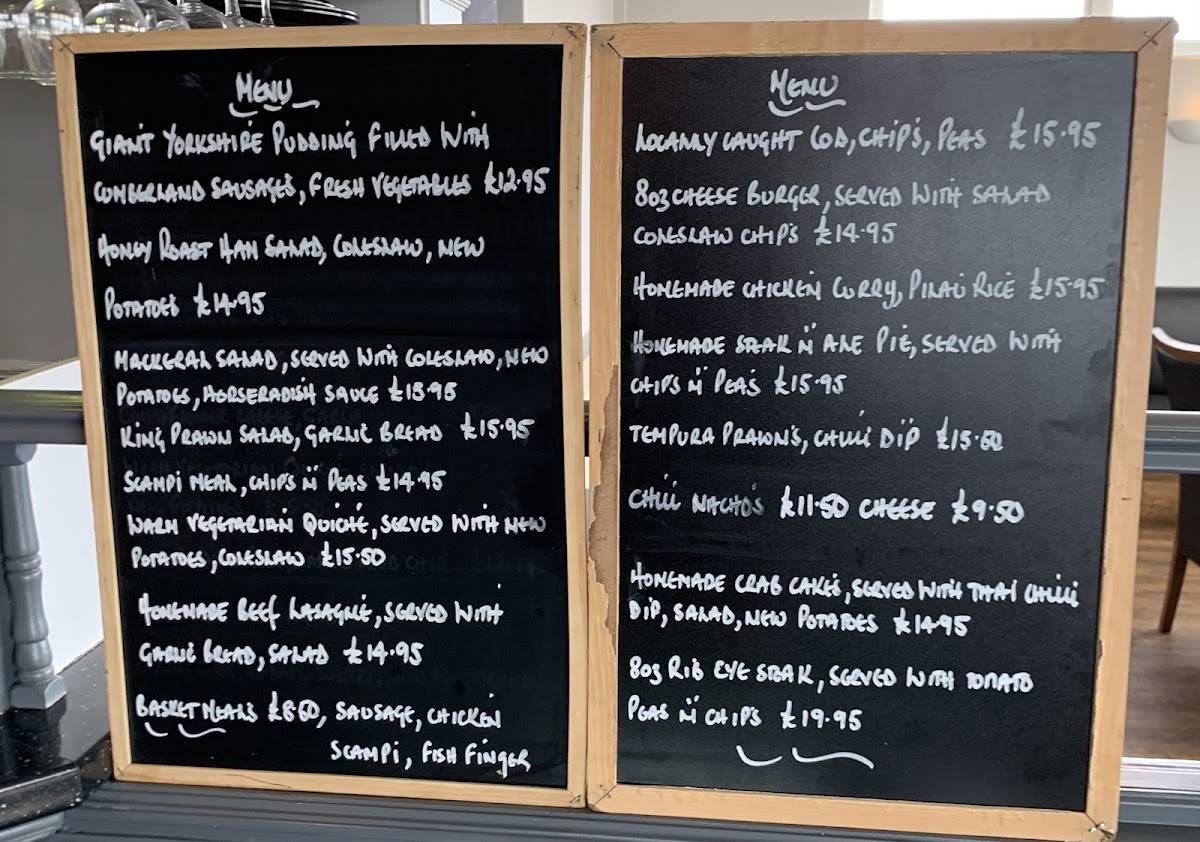 MENU
GIANT YORKSHIRE PUDDING FILLED WITH
CUMBERLAND SAUSAGES, FRESH VEGETABLES £12.95
HONEY ROAST HAM SALAD, COLESLAW, NEW
POTATOES £14.95
MACKERAL SALAD, SERVED WITH COLESLAW, NEW
POTATOES, HORSERADISH SAUCE £15.95
KING PRAWN SALAD, GARLIC BREAD £15.95
SCAMPI MEAL, CHIPS N PEAS £14.95
WARM VEGETARIAN QUICHE, SERVED WITH NEW
POTATOES, COLESLAW £15.50
HOMEMADE BEEF LASAGNE, SERVED WITH
GARLIC BREAD, SALAD £14.95
BASKET MEALS £8.60, SAUSAGE, CHICKEN
SCAMPI, FISH FINGER
MENU
LOCALLY CAUGHT COD, CHIP'S, PEAS £15.95
8oz CHEESE BURGER, SERVED WITH SALAD
COLESLAW CHIP'S £14.95
HOMEMADE CHICKEN CURRY, PILAU RICE £15.95
HOMEMADE STEAK N ALE PIE, SERVED WITH
CHIP'S N PEA'S £15.95
TEMPURA PRAWN'S, CHILLI DIP £15.60
CHILLI NACHO'S £11.50 CHEESE £9.50
HOMEMADE CRAB CAKE'S, SERVED WITH THAI CHILLI
DIP, SALAD, NEW POTATOES £14.95
8oz RIB EYE STEAK, SERVED WITH TOMATO
PEAS N CHIP'S £19.95